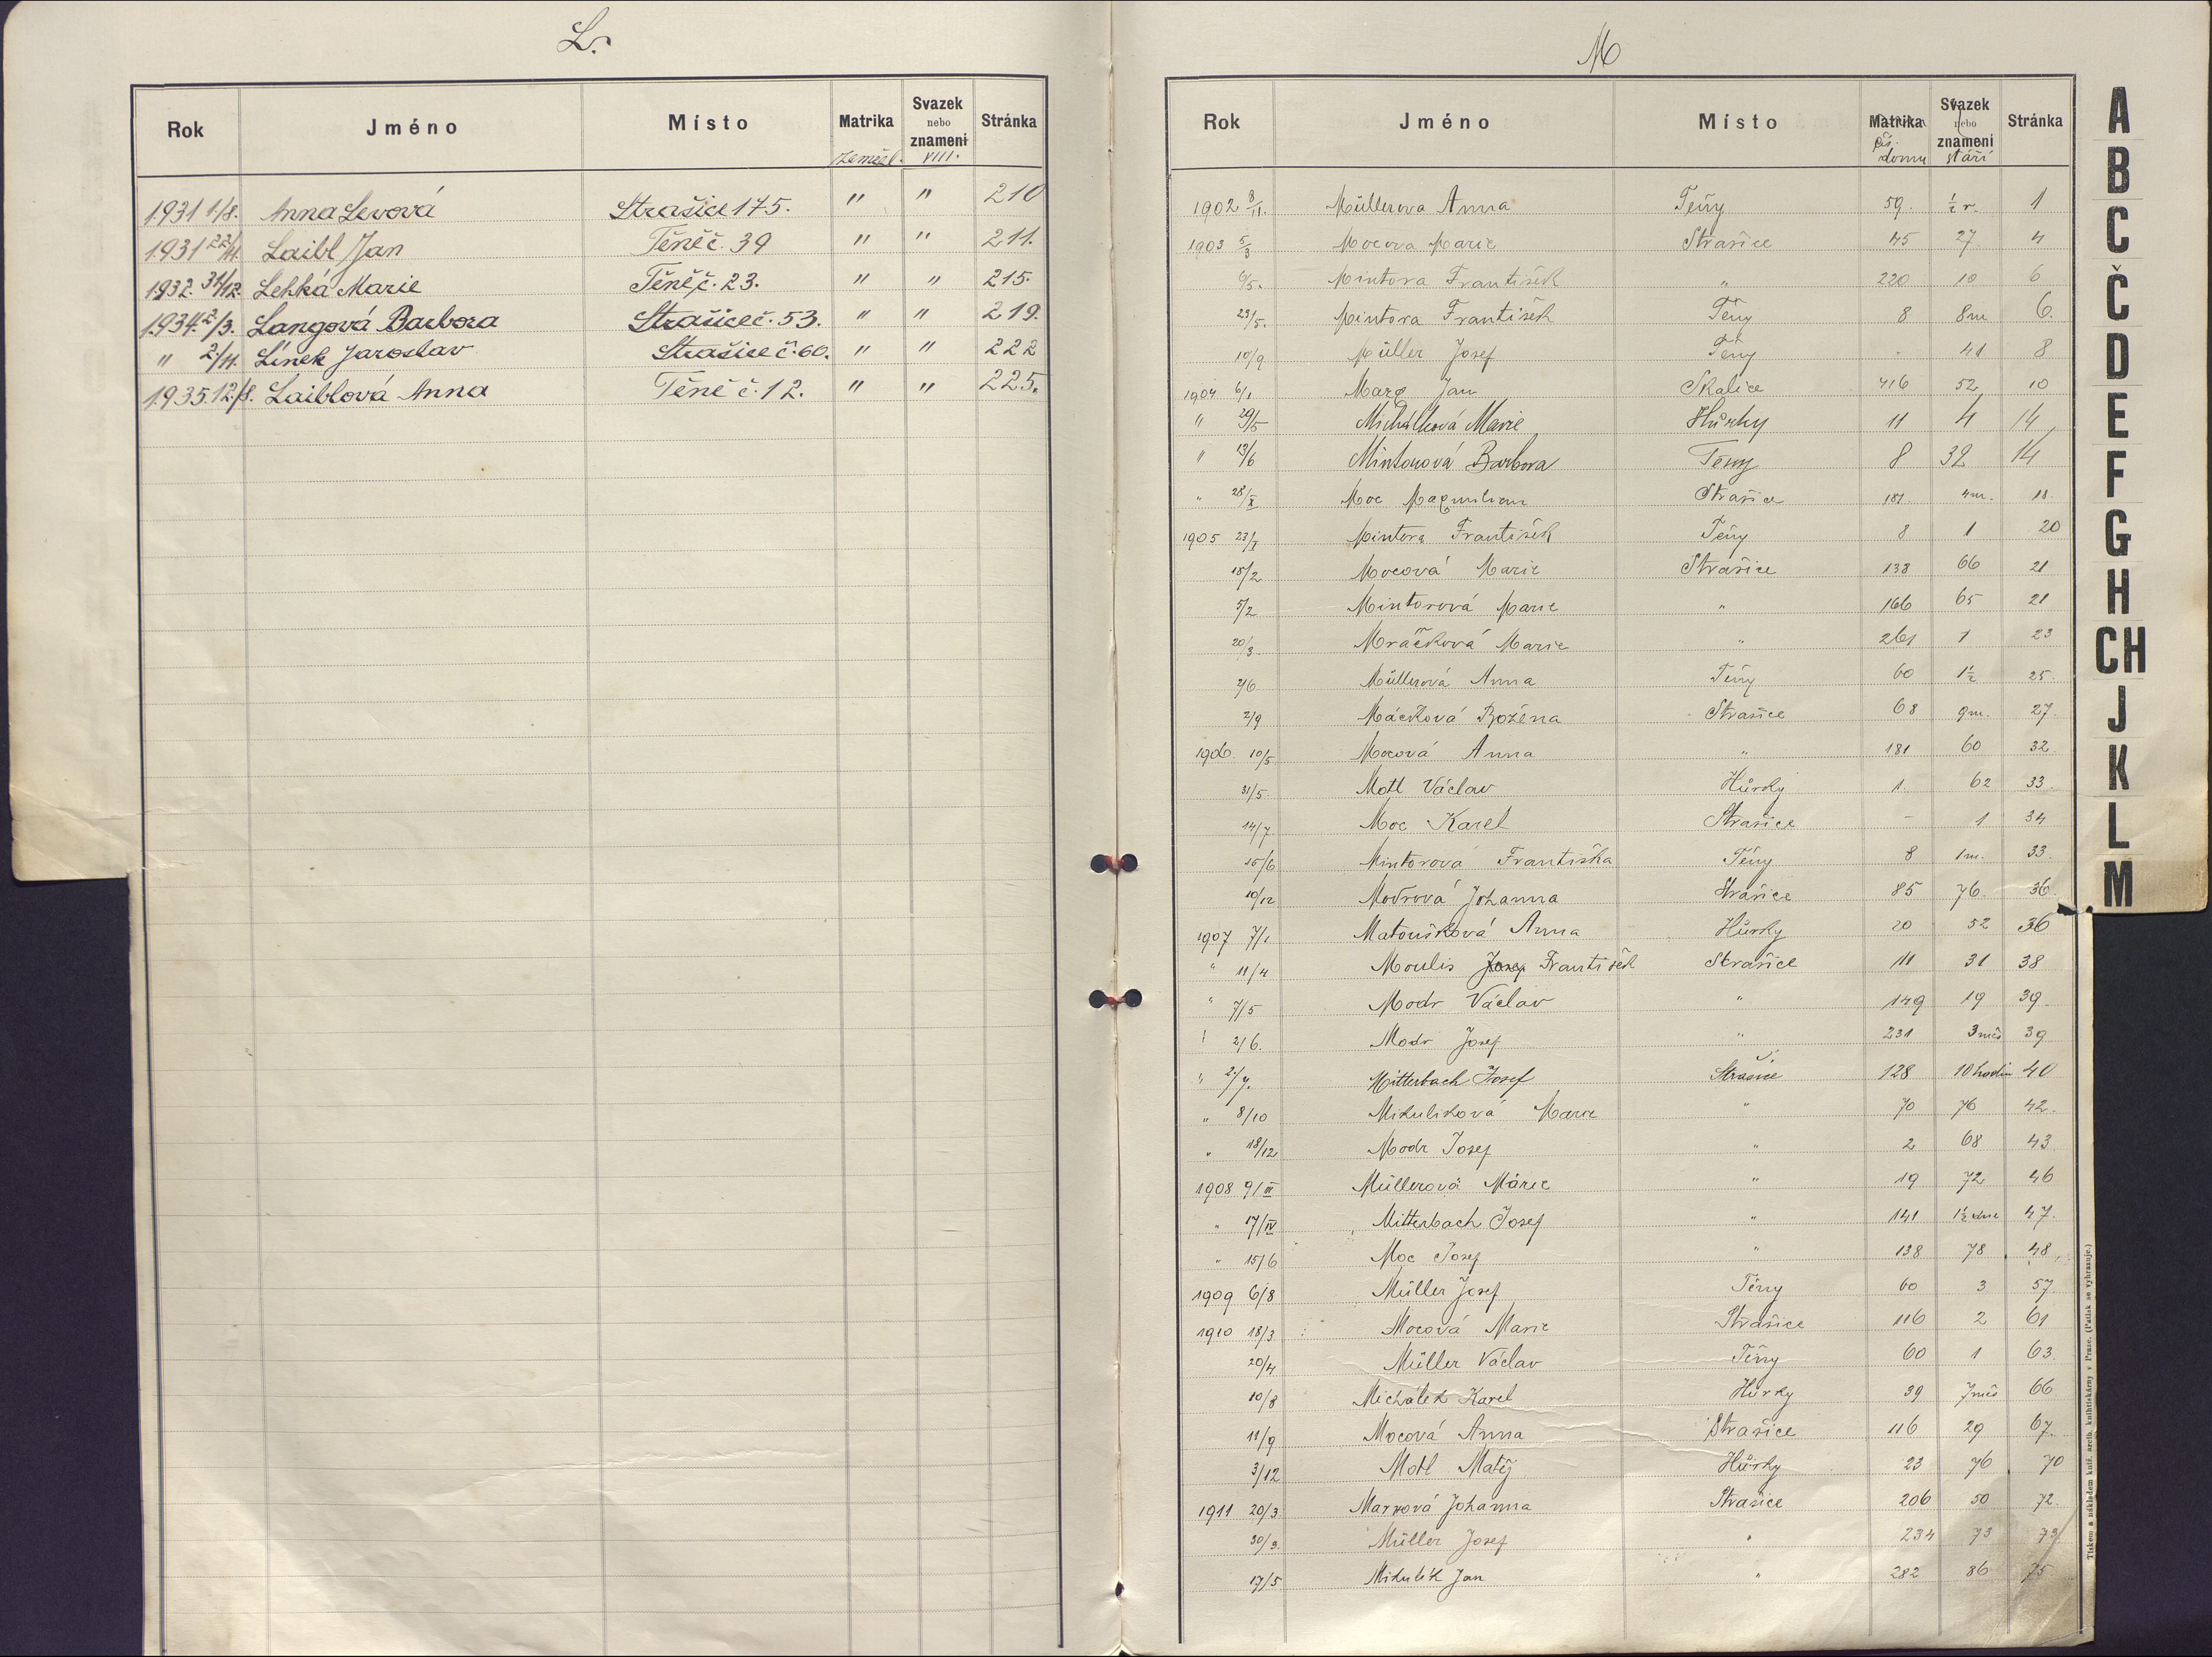 L.
Rok Jméno Místo Matrika Svazek nebo znamení Stránka
zemřel. VIII.
1931 1/8. Anna Levová Strašice 175. " " 210
1931 22/11. Laibl Jan Těně č. 39 " " 211.
1932. 31/12. Lehká Marie Těně č. 23. " " 215.
1934. 2/3. Langová Barbora Strašice č. 53. " " 219.
" 2/11. Línek Jaroslav Strašice č. 60. " " 222
1935. 12./8. Laiblová Anna Těně č. 12. " " 225.
M
Rok Jméno Místo Matrika Svazek nebo znamení Stránka
čís. domu stáří
1902 8/11. Müllerova Anna Těny 59. ½ r. 1
1903 5/3 Mocova Marie Strašice 45 27 4
6/5. Mintora František " 220 10 6
23/5. Mintora František Těny 8 8m 6.
10/9 Müller Josef Těny - 41 8
1904 6/1 Marx Jan Skalice 416 52 10
" 29/5 Michalková Marie Hůrky 11 4 14
" 13/6 Mintorová Barbora Těny 8 32 14
" 28/X Moc Maxmilian Strašice 181. 4m. 18.
1905 23/I Mintora František Těny 8 1 20
18/2 Mocová Marie Strašice 138 66 21
5/2 Mintorová Marie " 166 65 21
20/3. Mráčková Marie " 261 1 23
2/6 Müllerová Anna Těny 60 1½ 25.
2/9 Máčková Božena Strašice 68 9m. 27.
1906. 10/5 Mocová Anna " 181 60 32
31/5. Motl Václav Hůrky 1. 62 33.
14/7. Moc Karel Strašice - 1 34
15/6 Mintorová Františka Těny 8 1m. 33.
10/12 Modrová Johanna Strašice 85 76. 36.
1907 7/1. Matoušková Anna Hůrky 20 52 36
" 11/4 Moulis Josef František Strašice 11 31 38
" 7/5 Modr Václav " 149 19 39.
" 2/6. Modr Josef " 231 3 měs 39
" 2./7. Mitterbach Josef Strašice 128 10 hodin 40
" 8/10 Mikuliková Marie " 70 76 42.
" 18/12 Modr Josef " 2 68 43
1908 9/III Müllerová Marie " 19 72 46
" 17/IV Mitterbach Josef " 141 1½ dne 47.
" 15/6 Moc Josef " 138 78 48
1909 6/8 Müller Josef Těny 60 3 57
1910 18/3 Mocová Marie Strašice 116 2 61
20/4 Müller Václav Těny 60 1 63.
10/8 Michálek Karel Hůrky 39 7 měs 66
11/9 Mocová Anna Strašice 116 29 67.
3/12 Motl Matěj Hůrky 23 76 70
1911 20/3 Marxová Johanna Strašice 206 50 72.
30/3. Müller Josef " 234 73 73
17/5 Mikulík Jan " 282 86 75
A
B
C
Č
D
E
F
G
H
CH
J
K
L
M
Tiskem a nákladem kníž. arcib. knihtiskárny v Praze. (Patisk se vyhrazuje.)